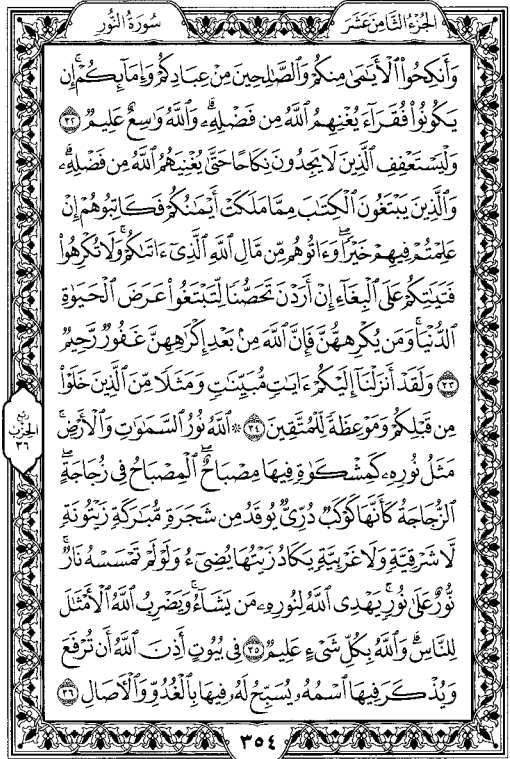 الجزء الثامن عشر
سورة النور
وَأَنكِحُوا۟ ٱلْأَيَـٰمَىٰ مِنكُمْ وَٱلصَّـٰلِحِينَ مِنْ عِبَادِكُمْ وَإِمَآئِكُمْ ۚ إِن
يَكُونُوا۟ فُقَرَآءَ يُغْنِهِمُ ٱللَّهُ مِن فَضْلِهِۦ ۗ وَٱللَّهُ وَٰسِعٌ عَلِيمٌ ٣٢
وَلْيَسْتَعْفِفِ ٱلَّذِينَ لَا يَجِدُونَ نِكَاحًا حَتَّىٰ يُغْنِيَهُمُ ٱللَّهُ مِن فَضْلِهِۦ ۗ
وَٱلَّذِينَ يَبْتَغُونَ ٱلْكِتَـٰبَ مِمَّا مَلَكَتْ أَيْمَـٰنُكُمْ فَكَاتِبُوهُمْ إِنْ
عَلِمْتُمْ فِيهِمْ خَيْرًا ۖ وَءَاتُوهُم مِّن مَّالِ ٱللَّهِ ٱلَّذِىٓ ءَاتَىٰكُمْ ۚ وَلَا تُكْرِهُوا۟
فَتَيَـٰتِكُمْ عَلَى ٱلْبِغَآءِ إِنْ أَرَدْنَ تَحَصُّنًا لِّتَبْتَغُوا۟ عَرَضَ ٱلْحَيَوٰةِ
ٱلدُّنْيَا ۚ وَمَن يُكْرِههُّنَّ فَإِنَّ ٱللَّهَ مِنۢ بَعْدِ إِكْرَٰهِهِنَّ غَفُورٌ رَّحِيمٌ
٣٣ وَلَقَدْ أَنزَلْنَآ إِلَيْكُمْ ءَايَـٰتٍ مُّبَيِّنَـٰتٍ وَمَثَلًا مِّنَ ٱلَّذِينَ خَلَوْا۟
مِن قَبْلِكُمْ وَمَوْعِظَةً لِّلْمُتَّقِينَ ٣٤ ۞ ٱللَّهُ نُورُ ٱلسَّمَـٰوَٰتِ وَٱلْأَرْضِ ۚ
ربع
الحزب
٣٦
مَثَلُ نُورِهِۦ كَمِشْكَوٰةٍ فِيهَا مِصْبَاحٌ ۖ ٱلْمِصْبَاحُ فِى زُجَاجَةٍ ۖ
ٱلزُّجَاجَةُ كَأَنَّهَا كَوْكَبٌ دُرِّىٌّ يُوقَدُ مِن شَجَرَةٍ مُّبَـٰرَكَةٍ زَيْتُونَةٍ
لَّا شَرْقِيَّةٍ وَلَا غَرْبِيَّةٍ يَكَادُ زَيْتُهَا يُضِىٓءُ وَلَوْ لَمْ تَمْسَسْهُ نَارٌ ۚ
نُّورٌ عَلَىٰ نُورٍ ۗ يَهْدِى ٱللَّهُ لِنُورِهِۦ مَن يَشَآءُ ۚ وَيَضْرِبُ ٱللَّهُ ٱلْأَمْثَـٰلَ
لِلنَّاسِ ۗ وَٱللَّهُ بِكُلِّ شَىْءٍ عَلِيمٌ ٣٥ فِى بُيُوتٍ أَذِنَ ٱللَّهُ أَن تُرْفَعَ
وَيُذْكَرَ فِيهَا ٱسْمُهُۥ يُسَبِّحُ لَهُۥ فِيهَا بِٱلْغُدُوِّ وَٱلْـَٔاصَالِ ٣٦
٣٥٤